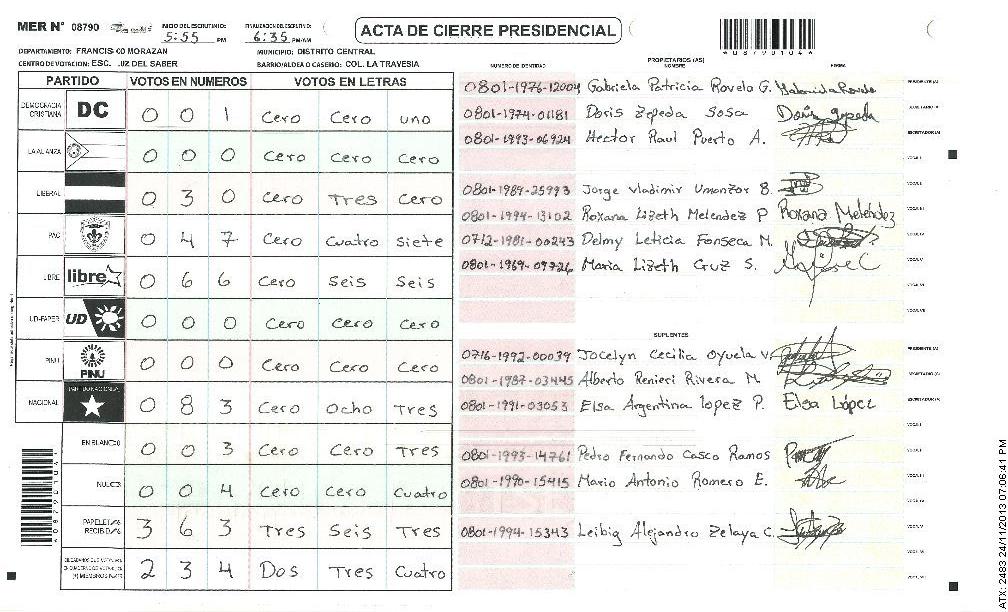 MER N° 08790
INICIO DEL ESCRUTINIO: 5:55 PM
FINALIZACION DEL ESCRUTINIO: 6:35 PM/AM
ACTA DE CIERRE PRESIDENCIAL
DEPARTAMENTO: FRANCISCO MORAZAN
MUNICIPIO: DISTRITO CENTRAL
CENTRO DE VOTACION: ESC. LUZ DEL SABER
BARRIO/ALDEA O CASERIO: COL. LA TRAVESIA
PARTIDO VOTOS EN NUMEROS VOTOS EN LETRAS
DEMOCRACIA CRISTIANA DC 0 0 1 Cero Cero uno
0 0 0 Cero Cero Cero
LIBERAL 0 3 0 Cero Tres Cero
PAC 0 4 7 Cero Cuatro Siete
LIBRE libre 0 6 6 Cero Seis Seis
UD-FAPER UD 0 0 0 Cero Cero Cero
PINU PINU 0 0 0 Cero Cero Cero
NACIONAL PARTIDO NACIONAL 0 8 3 Cero Ocho Tres
EN BLANCO 0 0 3 Cero Cero Tres
NULOS 0 0 4 Cero Cero Cuatro
PAPELETAS RECIBIDAS 3 6 3 Tres Seis Tres
2 3 4 Dos Tres Cuatro
NUMERO DE IDENTIDAD PROPIETARIOS (AS) NOMBRE FIRMA
0801-1976-12004 Gabriela Patricia Rovelo G. PRESIDENTE (A)
0801-1974-01181 Doris Zepeda Sosa Doris Zepeda SECRETARIO (A)
0801-1993-06924 Hector Raul Puerto A. ESCRUTADOR(A)
VOCAL I
0801-1989-25993 Jorge Vladimir Umanzor B. VOCAL II
0801-1994-13102 Roxana Lizeth Melendez P Roxana Meléndez VOCAL III
0712-1981-00243 Delmy Leticia Fonseca M. VOCAL IV
0801-1969-09726 Maria Lizeth Cruz S. VOCAL V
VOCAL VI
VOCAL VII
SUPLENTES
0716-1992-00039 Jocelyn Cecilia Oyuela V. PRESIDENTE (A)
0801-1987-03445 Alberto Renieri Rivera M. SECRETARIO (A)
0801-1991-03053 Elsa Argentina lopez P. Elsa López ESCRUTADOR(A)
VOCAL I
0801-1993-14761 Pedro Fernando Casco Ramos VOCAL II
0801-1990-15415 Mario Antonio Romero E. VOCAL III
VOCAL IV
0801-1994-15343 Leibig Alejandro Zelaya C. VOCAL V
VOCAL VI
VOCAL VII
ATX: 2483 24/11/2013 07:06:41 PM